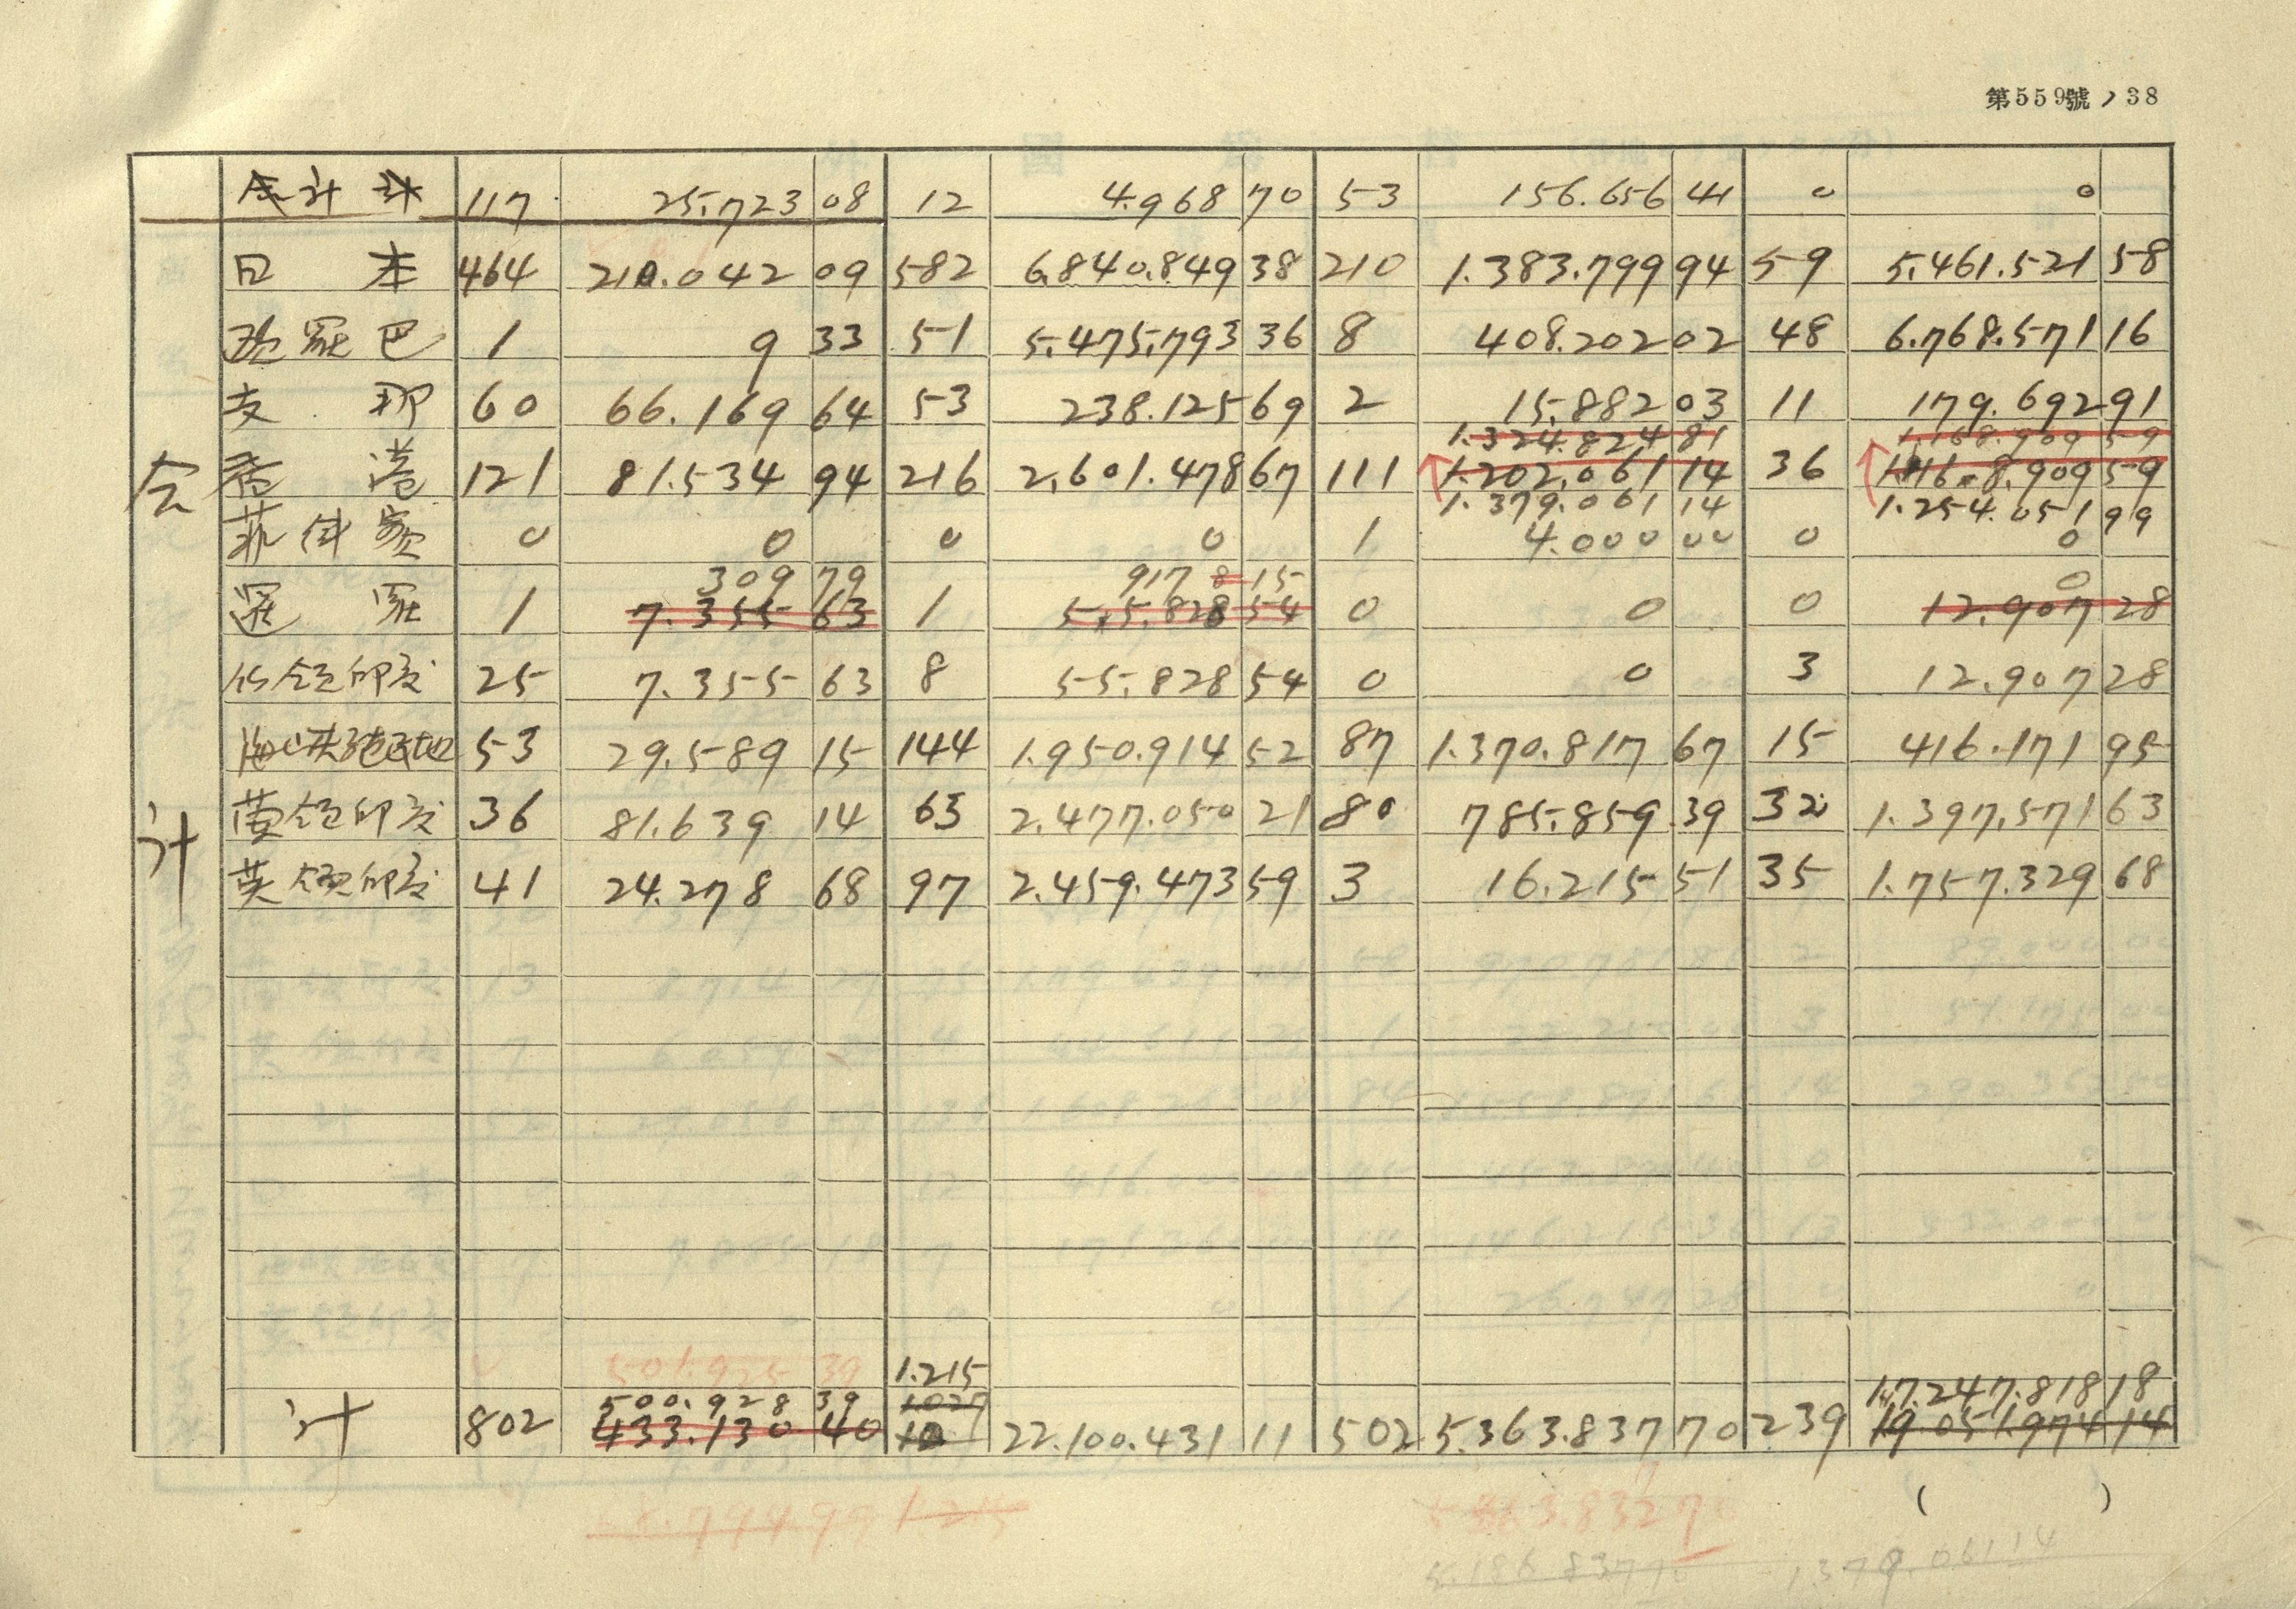 第559號ノ38
117 25,723 08 12 4,968 70 53 156,656 41 0 0
日本 464 210,042 09 582 6,840,849 38 210 1,383,799 94 59 5,461,521 58
欧羅巴 1 9 33 51 5,475,793 36 8 408,202 02 48 6,768,571 16
支那 60 66,169 64 53 238,125 69 2 15,882 03 11 179,692 91
1,324,824 81 1,168,909 59
香港 121 81,534 94 216 2,601,478 67 111 1,202,061 14 36 1,168,909 59
1,379,061 14 1,254,051 99
菲律賓 0 0 0 0 1 4,000 00 0 0
309 79 917 8 15 0
暹羅 1 7,355 63 1 55,828 54 0 0 0 12,907 28
仏領印度 25 7,355 63 8 55,828 54 0 0 3 12,907 28
海峡殖民地 53 29,589 15 144 1,950,914 52 87 1,370,817 67 15 416,171 95
蘭領印度 36 81,639 14 63 2,477,050 21 80 785,859 39 32 1,397,571 63
英領印度 41 24,278 68 97 2,459,473 59 3 16,215 51 35 1,757,329 68
合計
501,925 39 1,215
500,928 39 1027 17,247,818 18
計 802 433,130 40 22,100,431 11 502 5,363,837 70 239 19,051,974 14
( )
1,379,061 14